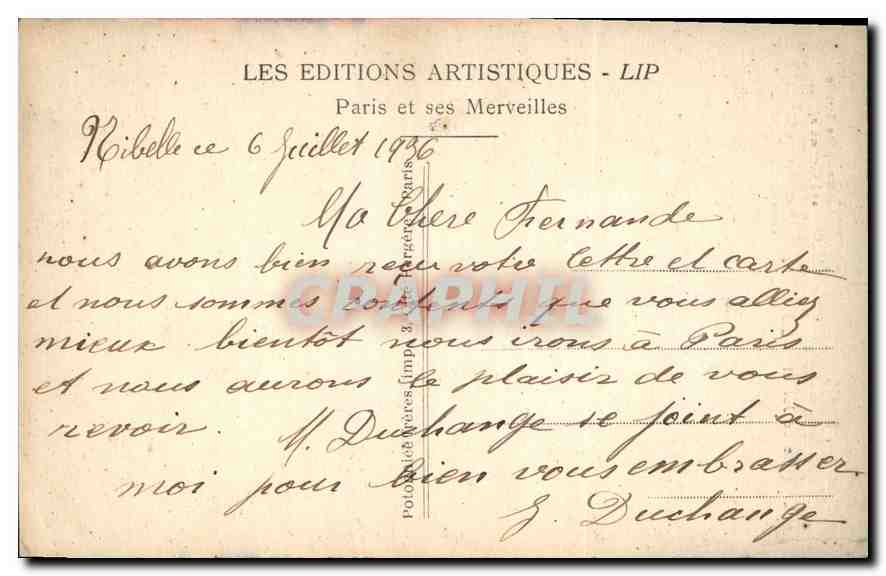 LES EDITIONS ARTISTIQUES - LIP
Paris et ses Merveilles
Nibelle ce 6 Juillet 1936
Ma Chere Fernande
nous avons bien reçu votre lettre et carte
et nous sommes contents que vous alliez
mieux bientôt nous irons à Paris
et nous aurons le plaisir de vous
revoir. M. Duchange se joint à
moi pour bien vous embrasser
Duchange
CPAPHIL
Frères (imp.) 3, Bergère, Paris